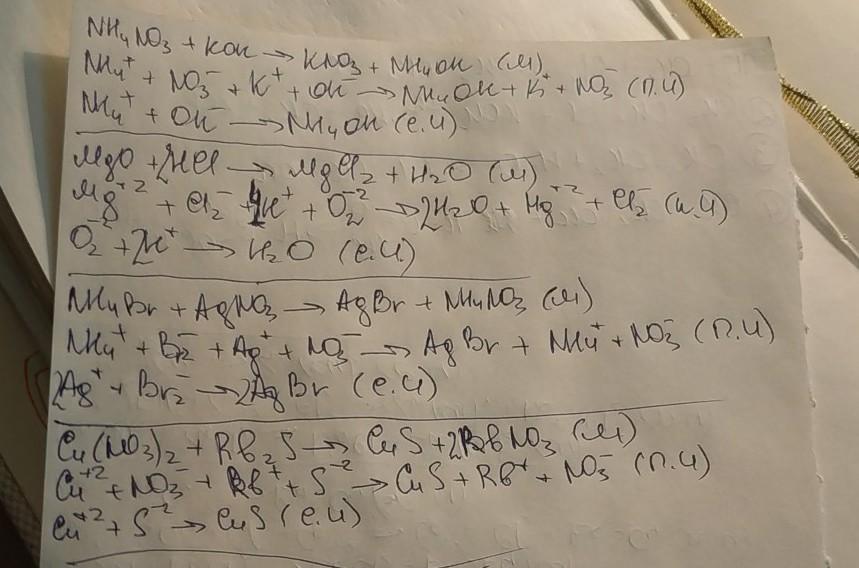 NH₄NO₃ + KOH → KNO₃ + NH₄OH (м)
NH₄⁺ + NO₃⁻ + K⁺ + OH⁻ → NH₄OH + K⁺ + NO₃⁻ (п.и)
NH₄⁺ + OH⁻ → NH₄OH (с.и)
MgO + 2HCl → MgCl₂ + H₂O (м)
Mg⁺² + Cl₂⁻ + 4H⁺ + O₂⁻² → 2H₂O + Mg⁺² + Cl₂⁻ (п.и)
O₂⁻² + 2H⁺ → H₂O (с.и)
NH₄Br + AgNO₃ → AgBr + NH₄NO₃ (м)
NH₄⁺ + Br₂⁻ + Ag⁺ + NO₃⁻ → AgBr + NH₄⁺ + NO₃⁻ (п.и)
2Ag⁺ + Br₂⁻ → 2AgBr (с.и)
Cu(NO₃)₂ + Rb₂S → CuS + 2RbNO₃ (м)
Cu⁺² + NO₃⁻ + Rb⁺ + S⁻² → CuS + Rb⁺ + NO₃⁻ (п.и)
Cu⁺² + S⁻² → CuS (с.и)